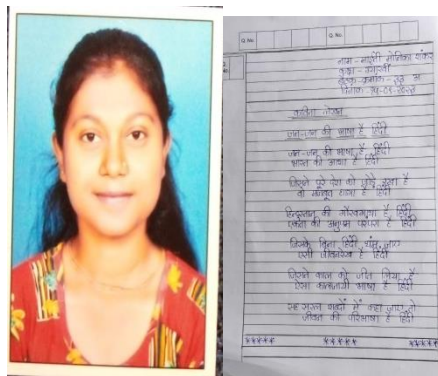 Q. No. Q. No.
नाम - मोनिका शंकर
कक्षा -
दिनांक -
कविता लेखन
जन-जन की भाषा है हिंदी
जन-जन की भाषा है हिंदी
भारत की आशा है हिंदी
जिसने पूरे देश को जोड़े रखा है
वो मजबूत धागा है हिंदी
हिन्दुस्तान की गौरवगाथा है हिंदी
एकता की अनुपम परंपरा है हिंदी
जिसके बिना हिंद थम जाए
ऐसी जीवनरेखा है हिंदी
जिसने काल को जीत लिया है
ऐसी कालजयी भाषा है हिंदी
सरल शब्दों में कहा जाए तो
जीवन की परिभाषा है हिंदी
***** ***** *****